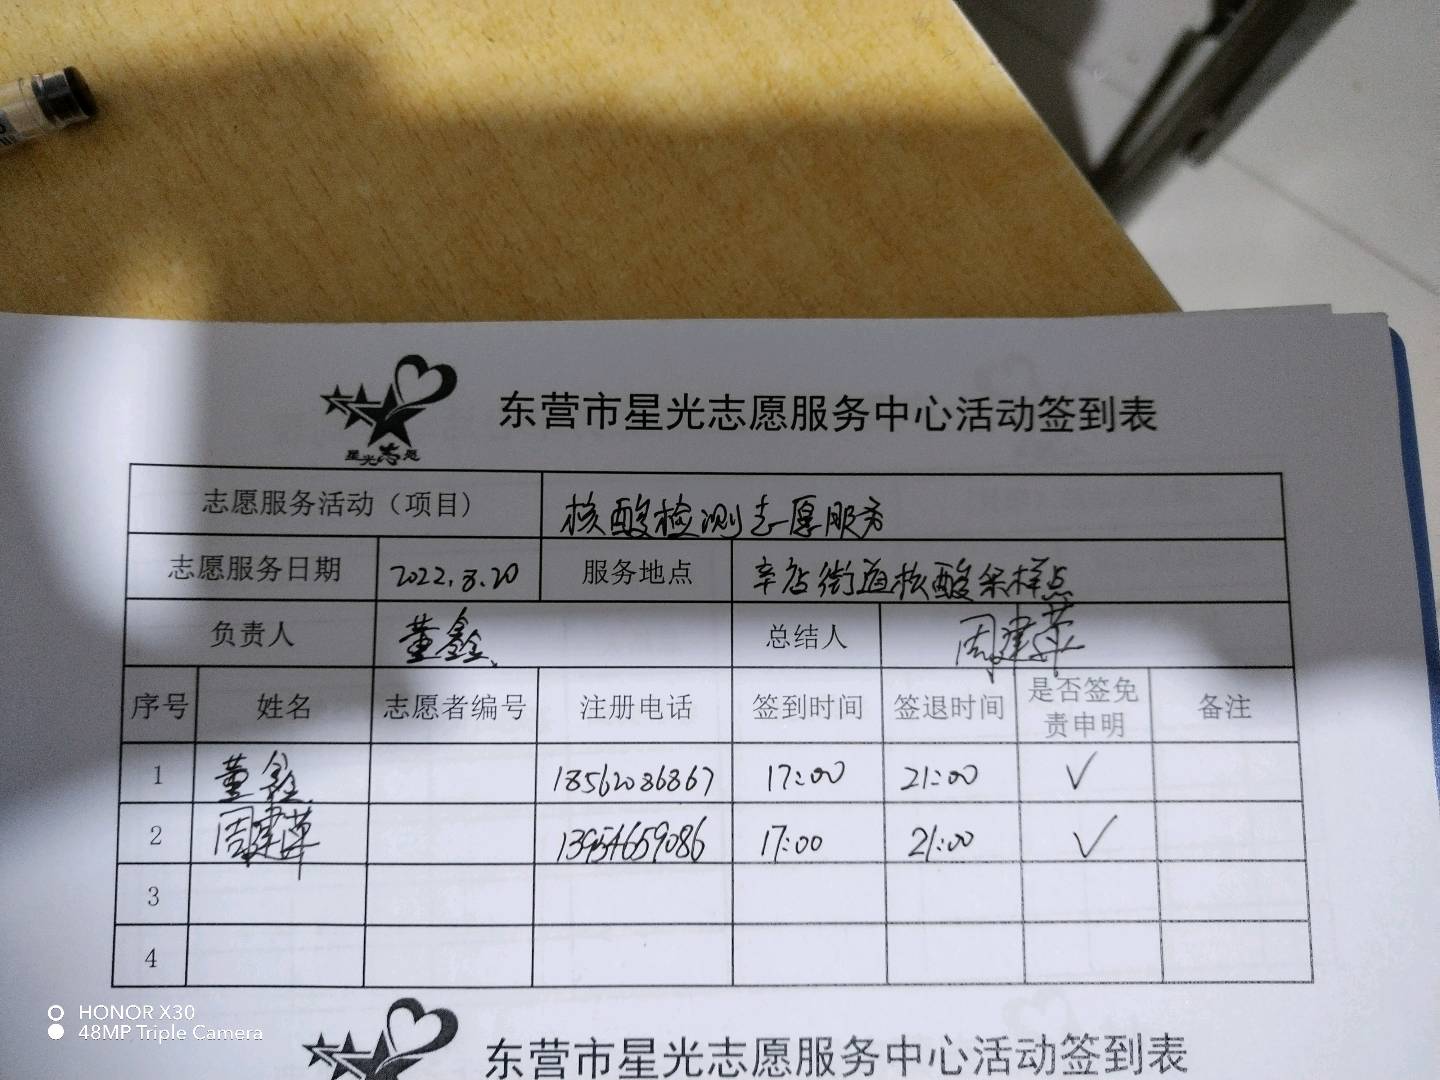 东营市星光志愿服务中心活动签到表
星光志愿
志愿服务活动（项目） 核酸检测志愿服务
志愿服务日期 2022.8.20 服务地点 辛店街道核酸采样点
负责人 董鑫 总结人 周建萍
序号 姓名 志愿者编号 注册电话 签到时间 签退时间 是否签免责申明 备注
1 董鑫 18562086867 17:00 21:00 √
2 周建萍 13954659086 17:00 21:00 √
3
4
HONOR X30
48MP Triple Camera
东营市星光志愿服务中心活动签到表